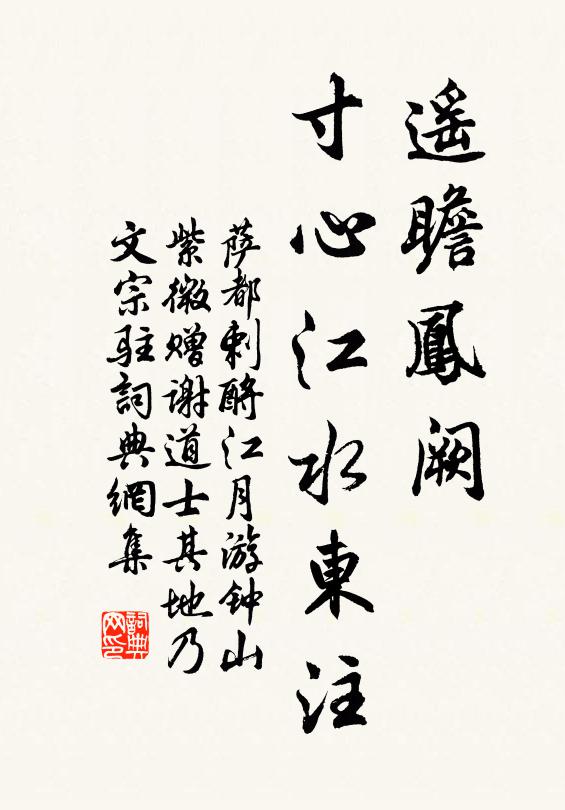 遥瞻鳳阙
寸心江水東注
萨都剌酹江月游钟山
紫微赠谢道士其地乃
文宗驻詞典網集
詞典
网印